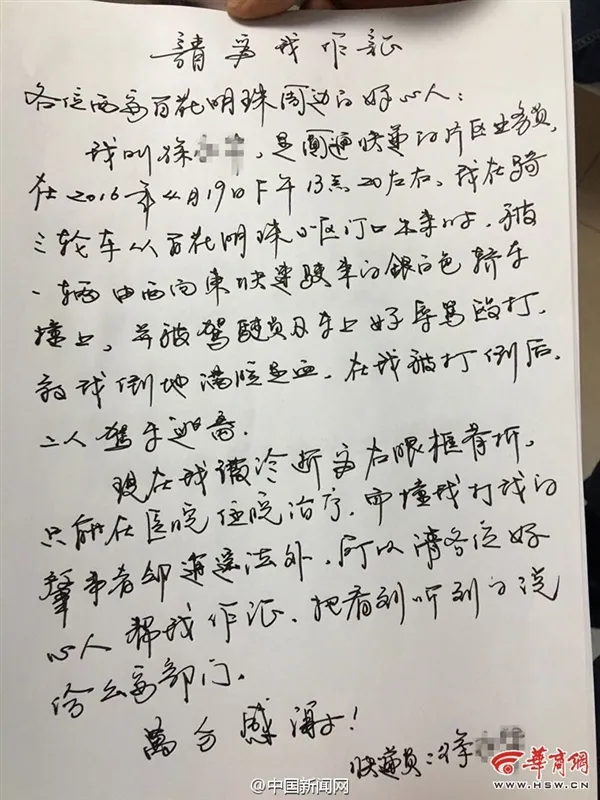 請為我作証
各位西安百花明珠周边的好心人：
我叫徐，是圆通快递的片区业务员，
在2016年4月19日下午13点20左右，我在骑
三轮车从百花明珠小区门口出来时，被
一辆由西向東快速駛来的銀白色轿车
撞上，并被驾駛员及车上好辱骂殴打，
致我倒地满脸是血，在我被打倒后，
二人驾车逃离。
现在我被诊断为右眼框骨折，
只能在医院住院治疗，而撞我打我的
肇事者却逍遥法外，所以請各位好
心人帮我作证，把看到听到的说
给公安部门。
萬分感謝！
快递员：徐
@中国新闻网
華商網
WWW.HSW.CN